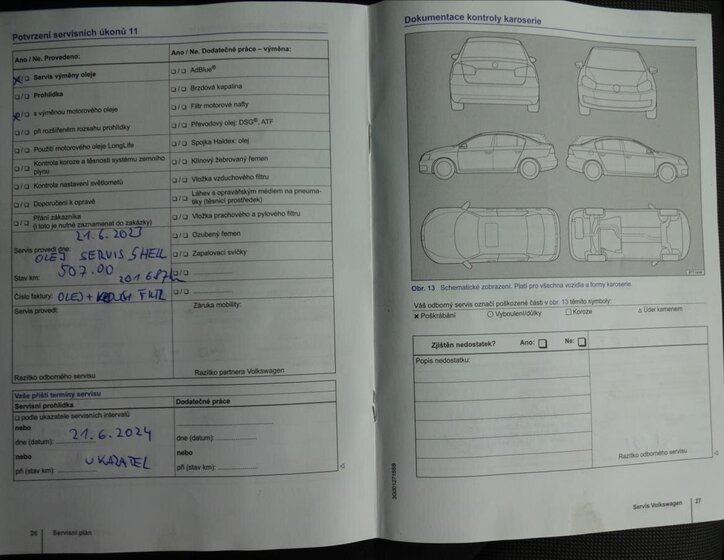 Potvrzení servisních úkonů 11
Ano / Ne. Provedeno:
☐/☐ Servis výměny oleje
☐/☐ Prohlídka
☐/☐ s výměnou motorového oleje
☐/☐ při rozšířeném rozsahu prohlídky
☐/☐ Použití motorového oleje LongLife
☐/☐ Kontrola koroze a těsnosti systému zemního
plynu
☐/☐ Kontrola nastavení světlometů
☐/☐ Doporučení k opravě
☐/☐ Přání zákazníka
(i toto je nutné zaznamenat do zakázky)
Ano / Ne. Dodatečné práce – výměna:
☐/☐ AdBlue®
☐/☐ Brzdová kapalina
☐/☐ Filtr motorové nafty
☐/☐ Převodový olej: DSG®, ATF
☐/☐ Spojka Haldex: olej
☐/☐ Klínový žebrovaný řemen
☐/☐ Vložka vzduchového filtru
☐/☐ Láhev s opravářským médiem na pneuma-
tiky (těsnicí prostředek)
☐/☐ Vložka prachového a pylového filtru
☐/☐ Ozubený řemen
☐/☐ Zapalovací svíčky
☐/☐
☐/☐
21.6.2023
Servis provedl dne:
OLEJ SERVIS SHELL
507.00
Stav km: 201687km
Číslo faktury: OLEJ + FILTR
Servis provedl:
Razítko odborného servisu
Záruka mobility:
Razítko partnera Volkswagen
Vaše příští termíny servisu
Servisní prohlídka
☐ podle ukazatele servisních intervalů
nebo
dne (datum): 21.6.2024
nebo
při (stav km): UKAZATEL
Dodatečné práce
dne (datum):
nebo
při (stav km):
26 Servisní plán
Dokumentace kontroly karoserie
Obr. 13 Schematické zobrazení. Platí pro všechna vozidla a formy karoserie.
Váš odborný servis označí poškozené části v obr. 13 těmito symboly:
✖ Poškrábání ○ Vyboulení/důlky ☐ Koroze △ Úder kamenem
Zjištěn nedostatek? Ano: ☐ Ne: ☐
Popis nedostatku:
Razítko odborného servisu
Servis Volkswagen 27